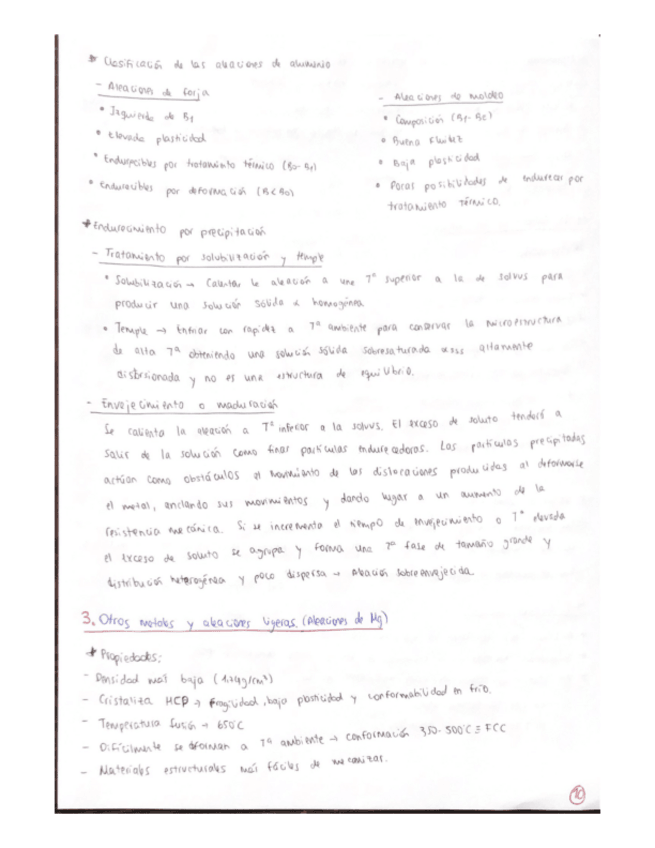 * Clasificación de las aleaciones de aluminio
- Aleaciones de forja
• Izquierda de B1
• Elevada plasticidad
• Endurecibles por tratamiento térmico (B0-B1)
• Endurecibles por deformación (B<B0)
- Aleaciones de moldeo
• Composición (B1-BE)
• Buena fluidez
• Baja plasticidad
• Pocas posibilidades de endurecer por
tratamiento térmico.
* Endurecimiento por precipitación
- Tratamiento por solubilización y temple
• Solubilización → Calentar la aleación a una Tª superior a la de solvus para
producir una solución sólida α homogénea
• Temple → Enfriar con rapidez a Tª ambiente para conservar la microestructura
de alta Tª obteniendo una solución sólida sobresaturada αsss altamente
distorsionada y no es una estructura de equilibrio.
- Envejecimiento o maduración
Se calienta la aleación a Tª inferior a la solvus. El exceso de soluto tenderá a
salir de la solución como finas partículas endurecedoras. Las partículas precipitadas
actúan como obstáculos al movimiento de las dislocaciones producidas al deformarse
el metal, anclando sus movimientos y dando lugar a un aumento de la
resistencia mecánica. Si se incrementa el tiempo de envejecimiento o Tª elevada
el exceso de soluto se agrupa y forma una 2ª fase de tamaño grande y
distribución heterogénea y poco dispersa → Aleación sobreenvejecida.
3. Otros metales y aleaciones ligeras. (Aleaciones de Mg)
* Propiedades:
- Densidad más baja (1,74g/cm³)
- Cristaliza HCP → fragilidad, baja plasticidad y conformabilidad en frío.
- Temperatura fusión → 650°C
- Difícilmente se deforman a Tª ambiente → conformación 350-500°C ≡ FCC
- Materiales estructurales más fáciles de mecanizar.
10